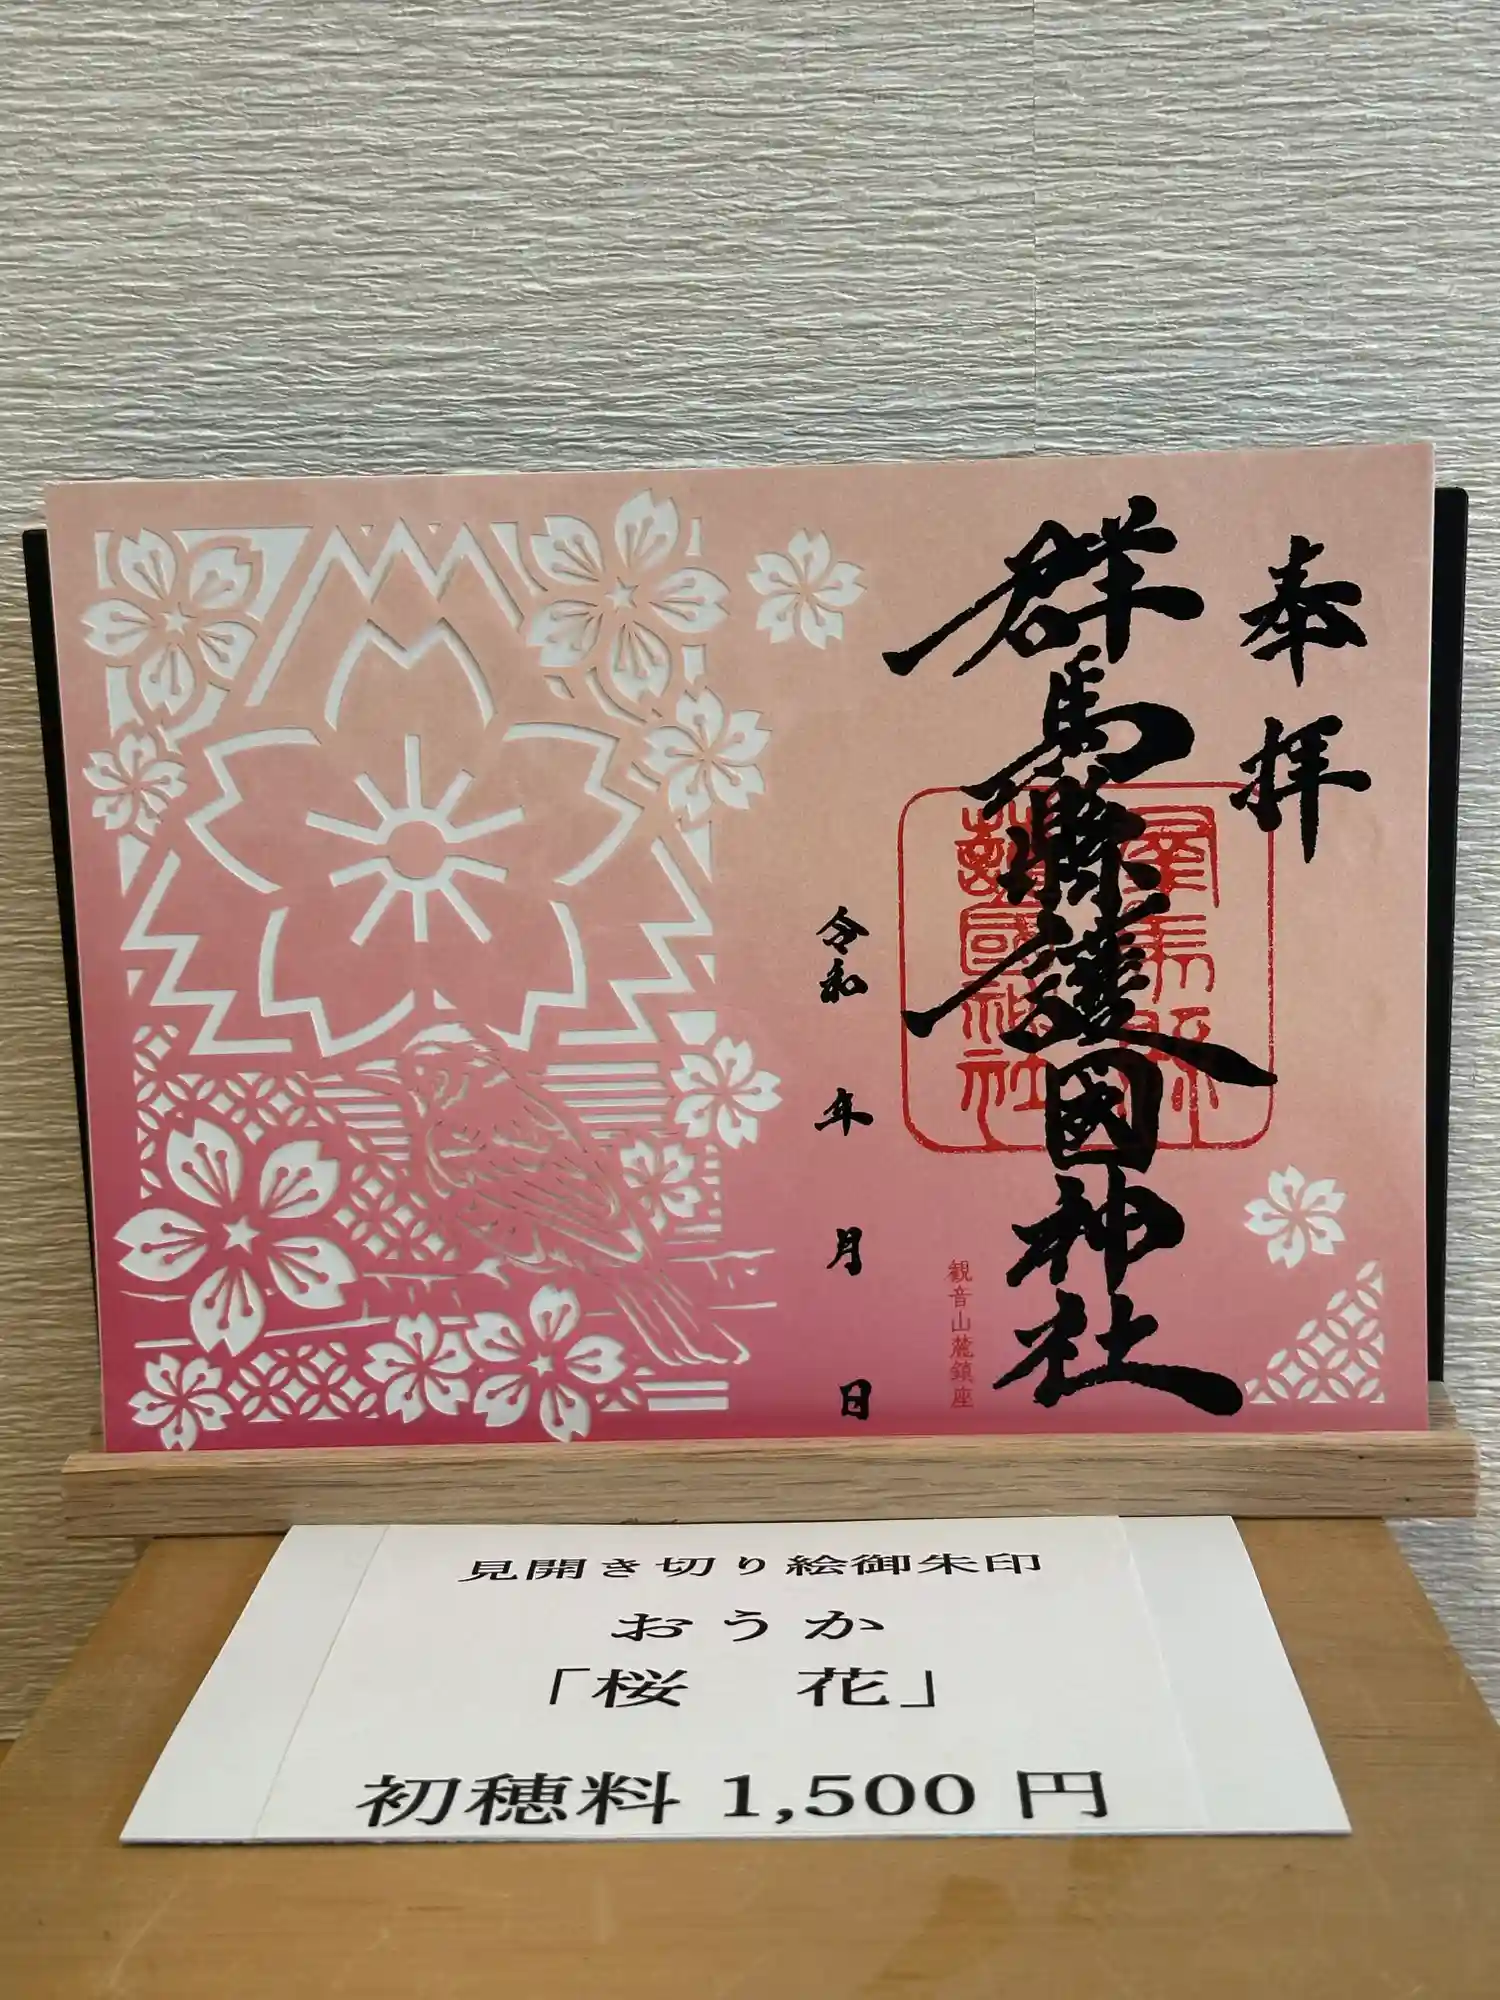 奉拝
群馬縣護国神社
群馬縣
護國神社
観音山麓鎮座
令和 年 月 日
見開き切り絵御朱印
おうか
「桜 花」
初穂料 1,500 円